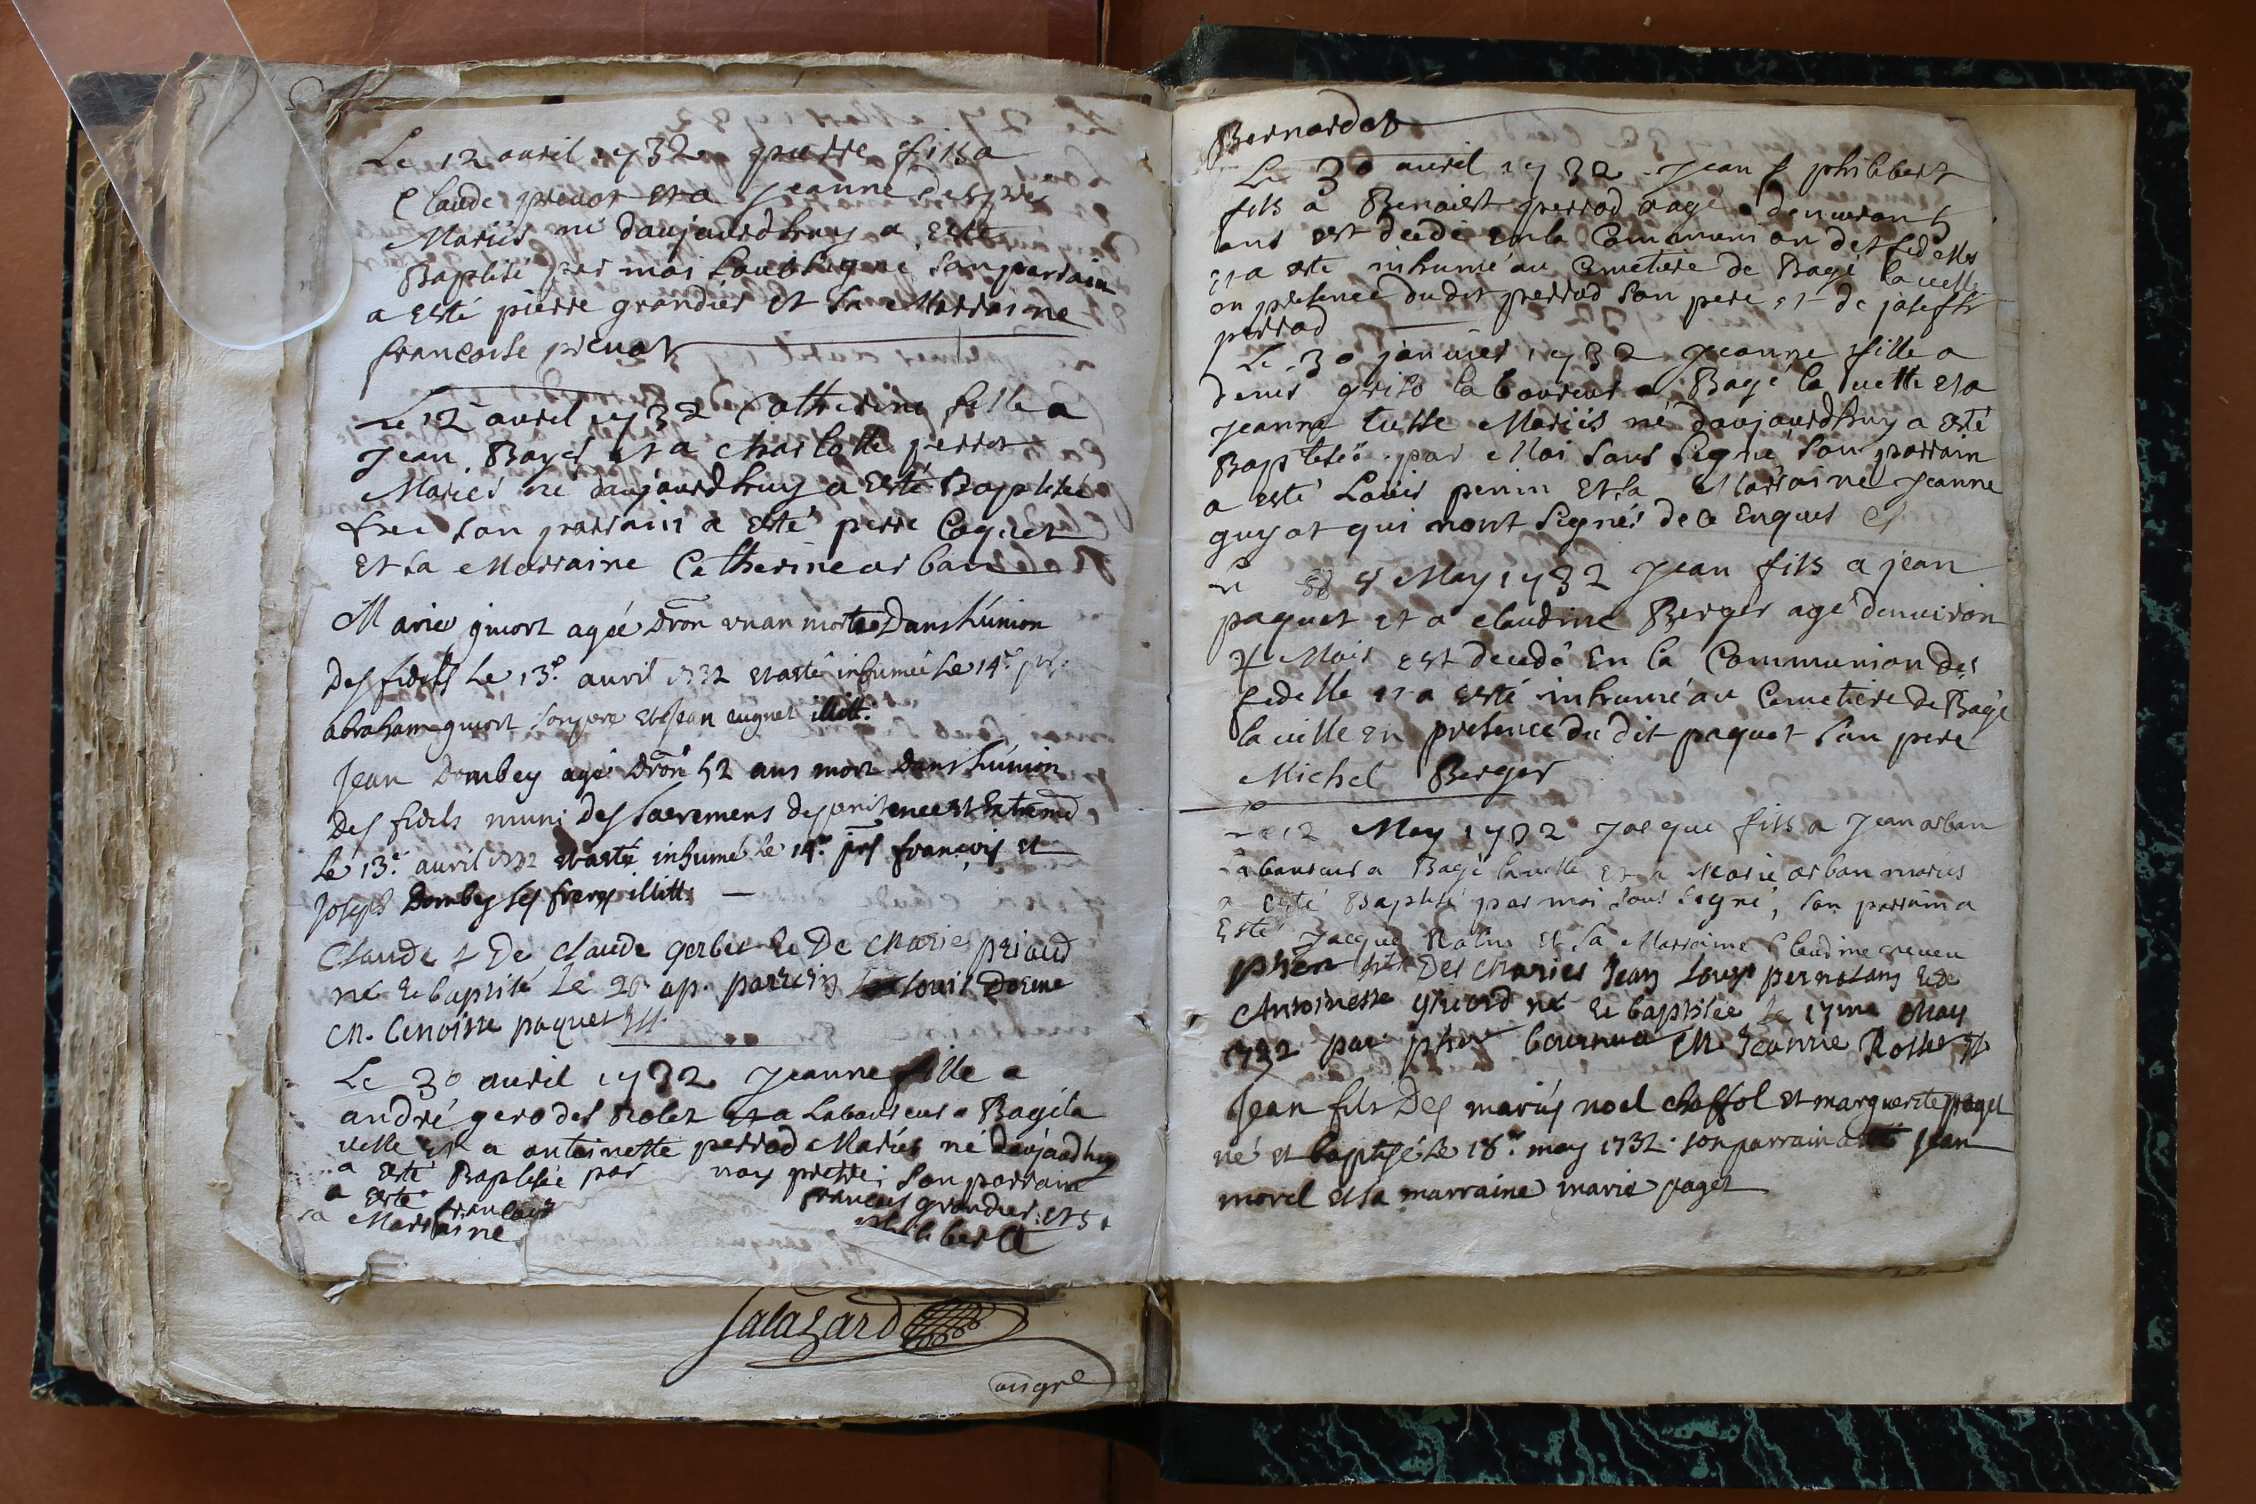 Le 12 avril 1732 pierre fils a
Claude prevot et a Jeanne despré
Mariés né daujourdhuy a esté
Baptisé par moi soubsigné son parrain
a esté pierre grandier et sa Marraine
francoise prevot
Le 12 avril 1732 Catherine fille a
Jean Bayer et a charlotte perrot
Mariés né daujourdhuy a esté Baptisée
son parrain a esté pierre Coquet
Et sa Marraine Catherine arban
Marie givort agée dron un an morte Dans L'union
Des fidels Le 13e avril 1732 et a esté inhumée Le 14e
abraham givort son pere et Jean cugnet illitt.
Jean Dombey agé dron 52 ans mort dans L'union
Des fidels muni des sacremens de penitence et Extreme
Le 13e avril 1732 et a esté inhumé le 14e françois et
Joseph Dombey ses freres illitt.
Claude f De claude gerbet & De Marie priaud
né & baptisé Le 26 ap. parrein Louis
M. benoitte paquet
Le 30 avril 1732 Jeanne fille a
andré gerodet et a Laboureur a Bagé la
ville et a antoinette perrod Mariés né daujourdhuy
a esté Baptisée par moy pretre; son parrain
a esté francois grandier et s
sa Marraine
Bernardot
Le 30 avril 1732 Jean philibert
fils a Benoist perrod agé denviron 5
ans est decedé en la Communion des fidelles
et a esté inhumé au Cemetiere de Bagé la ville
en presence du dit perrod son pere et de joseph
perrod
Le 30 janvier 1732 Jeanne fille a
denis laboureur a Bagé la ville et a
jeanne tisse Mariés né daujourdhuy a esté
Baptisée par Moi sous signé son parrain
a esté Louis penin et sa Marraine Jeanne
guyot qui nont signés de ce Enquis
Le 8 May 1732 Jean fils a jean
paquet et a claudine Berger agé denviron
Mois est decedé En la Communion des
fidelle et a esté inhumé au Cemetiere de Bagé
la ville en presence du dit paquet son pere
Michel Berger
Le 12 May 1732 Jacque fils a Jean arban
Laboureur a Bagé la ville et a Marie arban mariés
a esté Baptisé par moi sous signé, son parrain a
Esté Jacque et sa Marraine Claudine
fils Des Mariés Jean Louis pernolans & de
Antoinette givord né & baptisée le 17me May
1732 par M. Jeanne
Jean fils Des mariés noel chaffol et marguerite paget
né et baptisé Le 18e may 1732 son parrain a esté Jean
morel et sa marraine marie paget
Salazard